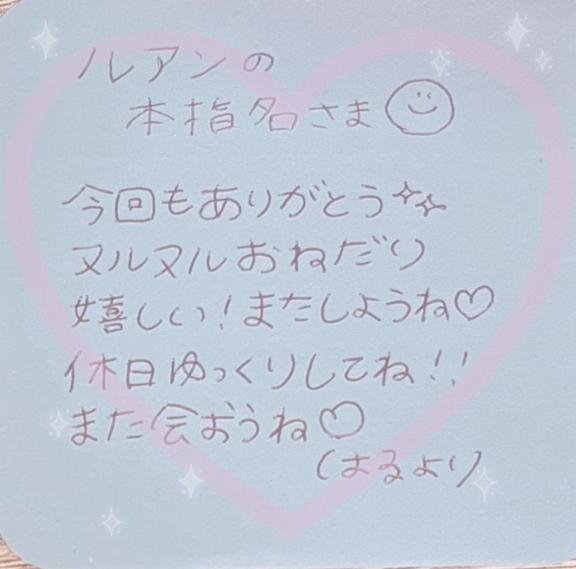 ルアンの
本指名さま
今回もありがとう
ヌルヌルおねだり
嬉しい!またしようね♡
休日ゆっくりしてね!!
また会おうね♡
(はるより